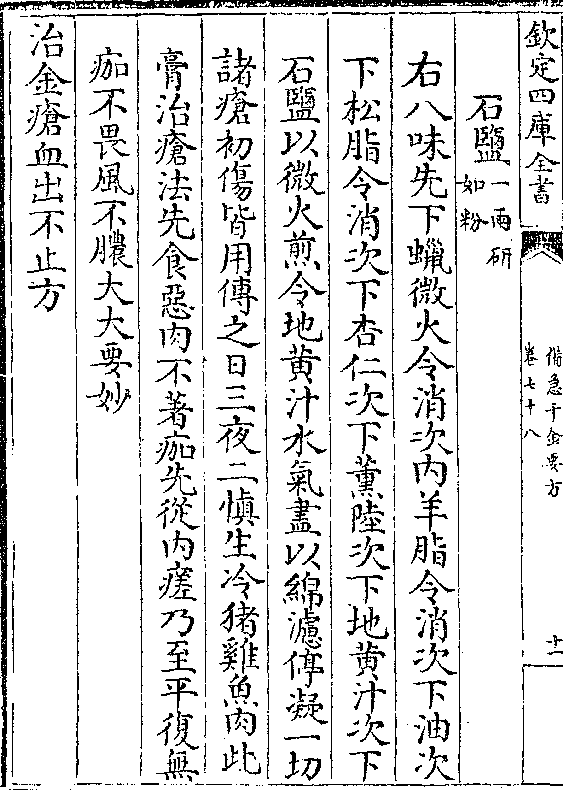 欽定四庫全書
備急千金要方
卷七十八
十一
石鹽一兩研如粉
右八味先下蠟微火令消次内羊脂令消次下油次
下松脂令消次下杏仁次下薰陸次下地黄汁次下
石鹽以微火煎令地黄汁水氣盡以綿濾停凝一切
諸瘡初傷皆用傅之日三夜二慎生冷猪雞魚肉此
膏治瘡法先食惡肉不著痂先從内瘥乃至平復無
痂不畏風不膿大大要妙
治金瘡血出不止方